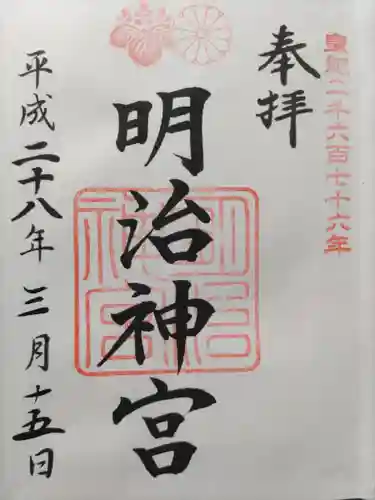 皇紀二千六百七十六年
奉拝
明治神宮
平成二十八年三月十五日
明治神宮